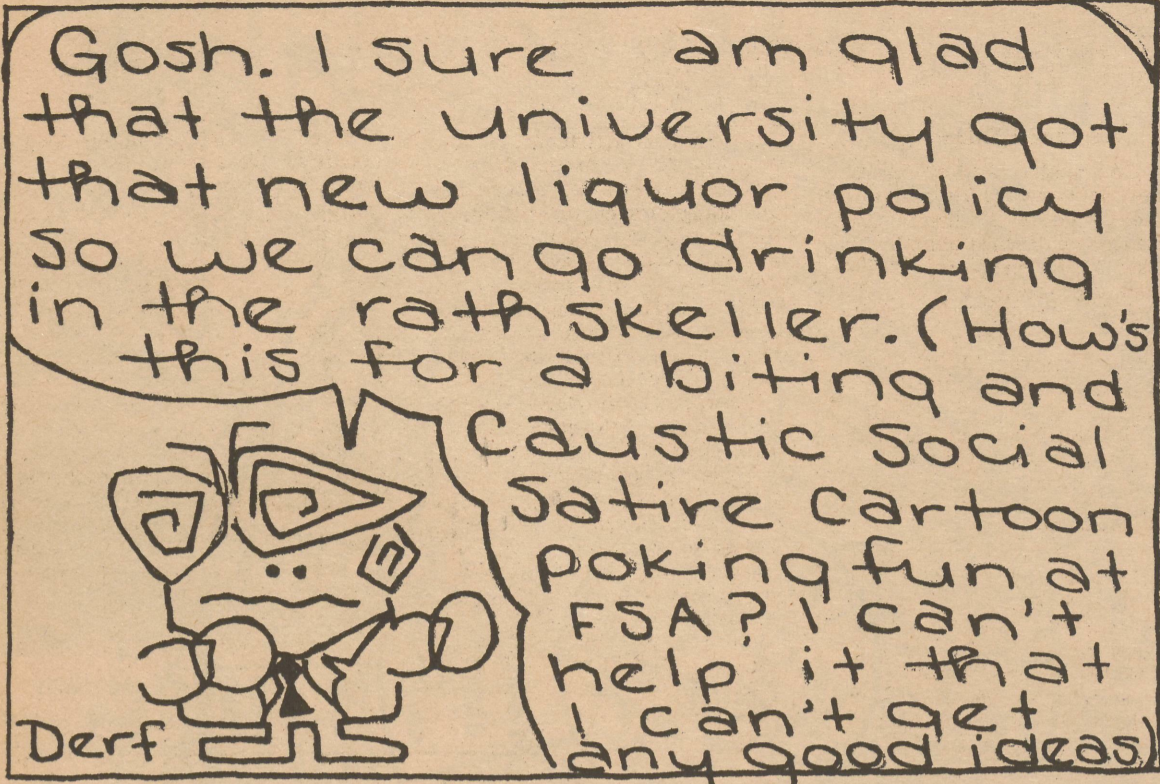 Gosh. I sure am glad
that the university got
that new liquor policy
so we can go drinking
in the rathskeller. (How's
this for a biting and
Caustic Social
Satire Cartoon
poking fun at
FSA? I can't
help it that
I can't get
any good ideas)
Derf